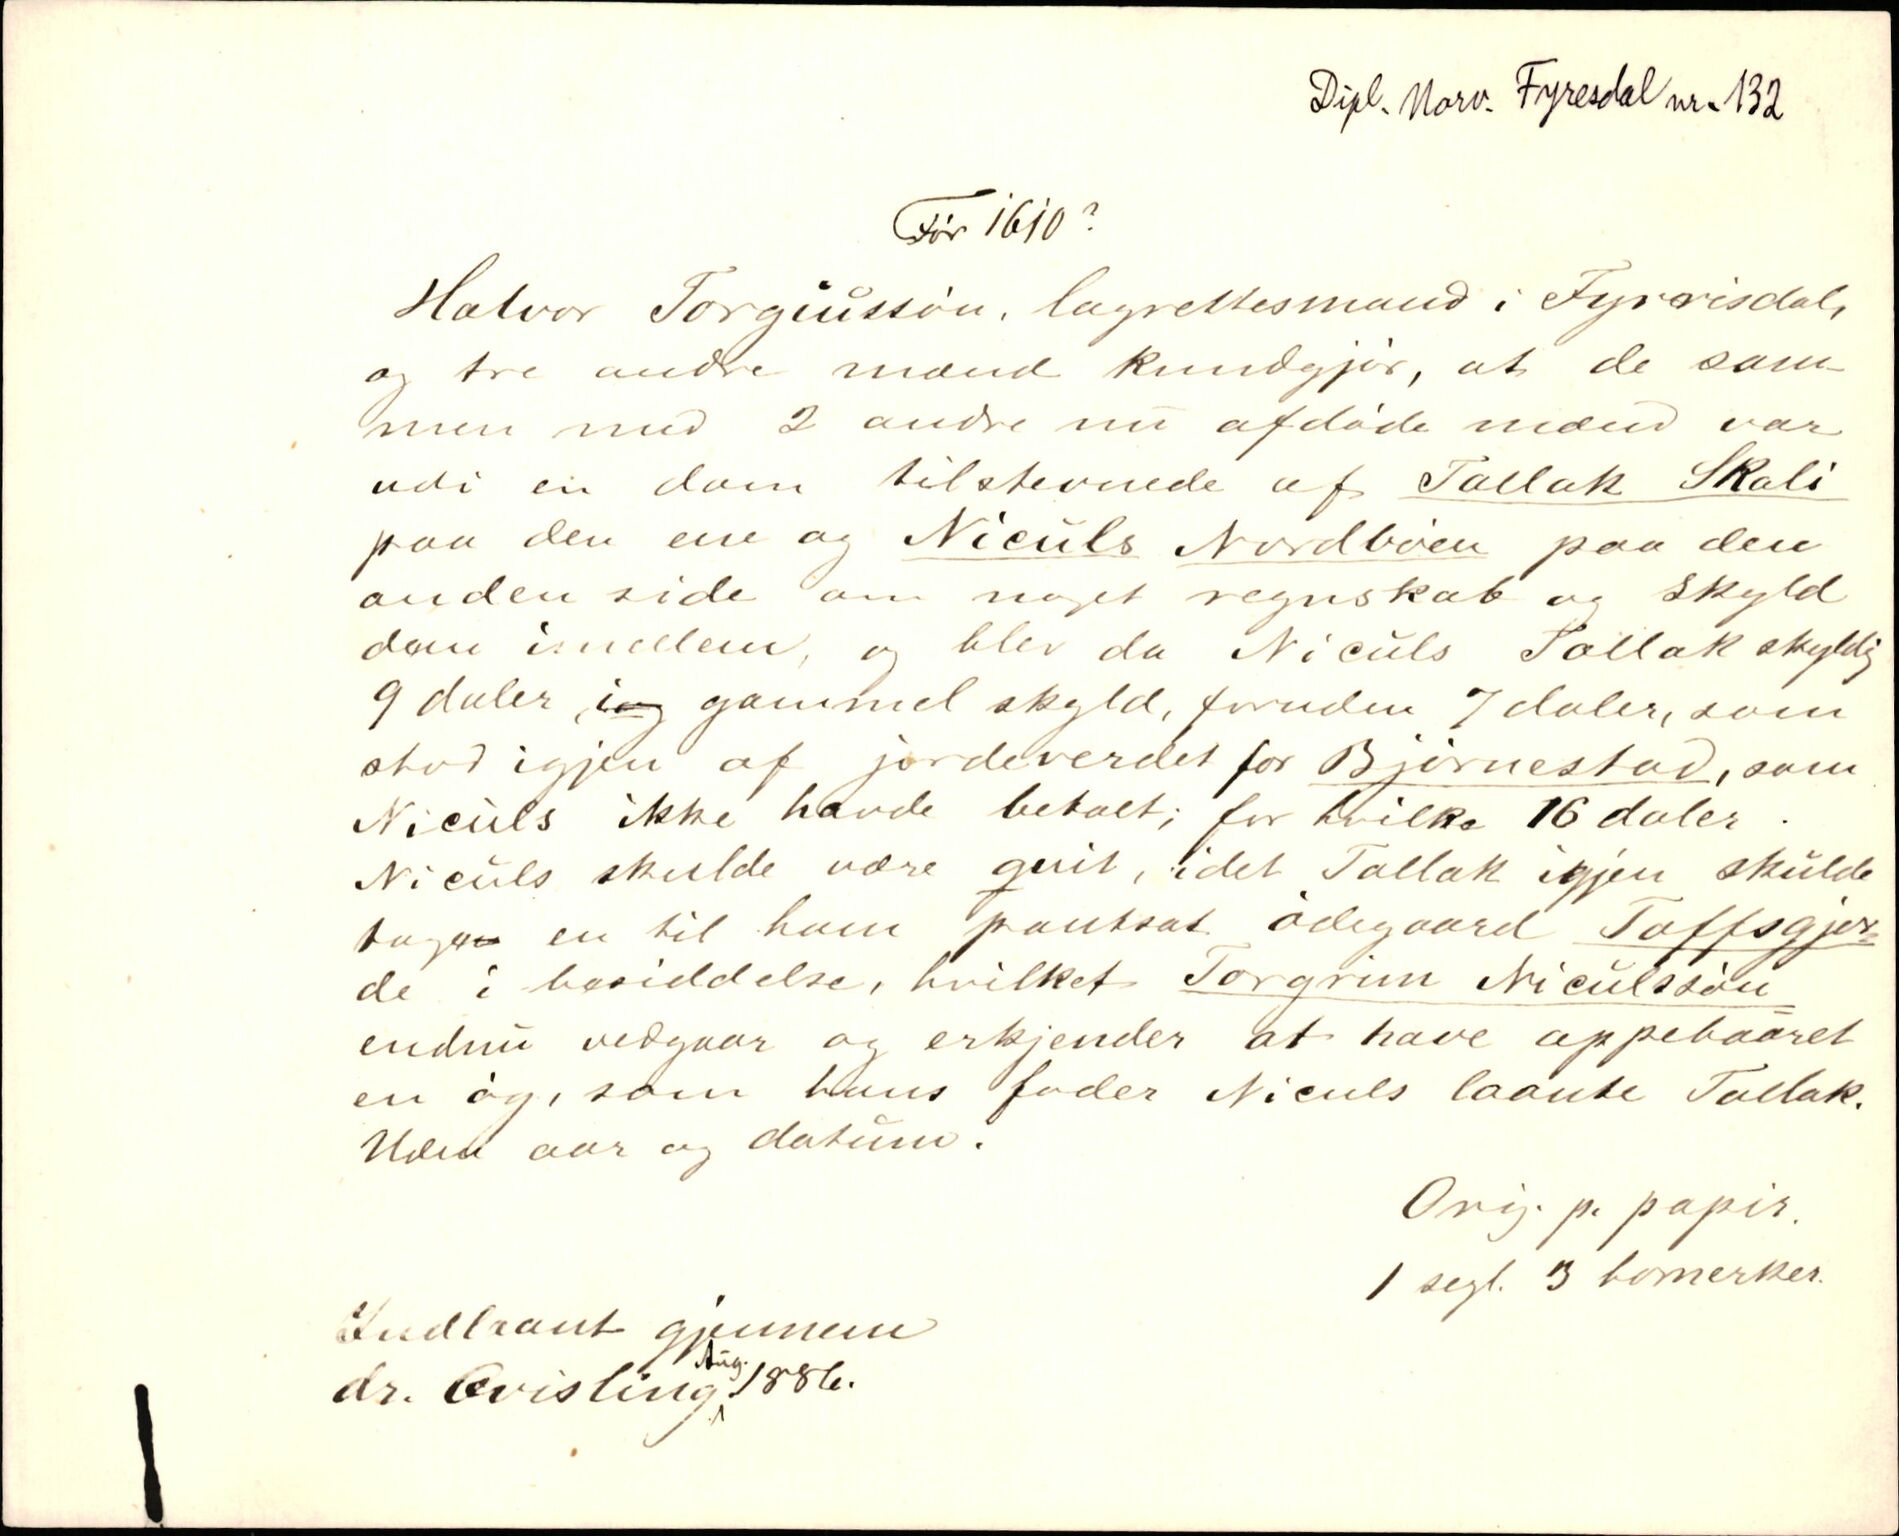 Dipl. Norv. Fyresdal nr. 132
Før 1610?
Halvor Torgiussøn, lagrettesmand i Fyrrisdal,
og tre andre mænd kundgjør, at de sam-
men med 2 andre nu afdøde mænd var
udi en dom tilstevnede af Tallak Skali
paa den ene og Niculs Nordbøen paa den
anden side om noget regnskab og skyld
dem imellem, og blev da Niculs Tallak skyldig
9 daler gammel skyld, foruden 7 daler, som
stod igjen af jordeverdet for Bjørnestad, som
Niculs ikke havde betalt; for hvilke 16 daler
Niculs skulde være qvit, idet Tallak igjen skulde
tage en til ham pantsat ødegaard Taffsgjer-
de i besiddelse, hvilket Torgrim Niculssøn
endnu vedgaar og erkjender at have oppebaaret
en øg, som hans fader Niculs laante Tallak.
Uden aar og datum.
Orig. p. papir.
1 segl. 3 bomerker.
Indlaant gjennem
dr. Qvisling Aug. 1886.